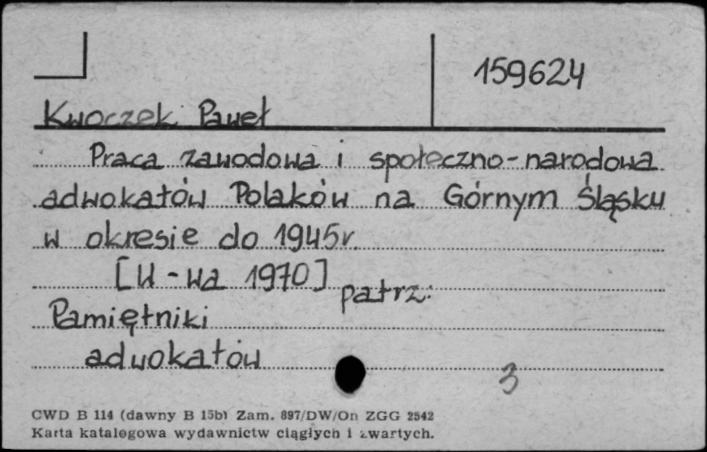 159624
Kwoczek Paweł
Praca zawodowa i społeczno-narodowa
adwokatów Polaków na Górnym Śląsku
w okresie do 1945r.
[W-wa 1970] patrz:
Pamiętniki
adwokatów
3
CWD B 114 (dawny B 15b) Zam. 897/DW/On ZGG 2542
Karta katalogowa wydawnictw ciągłych i zwartych.